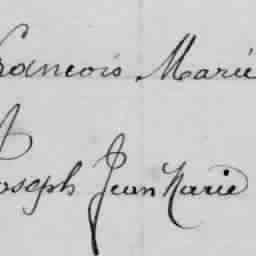 francois Marie
Joseph Jean Marie